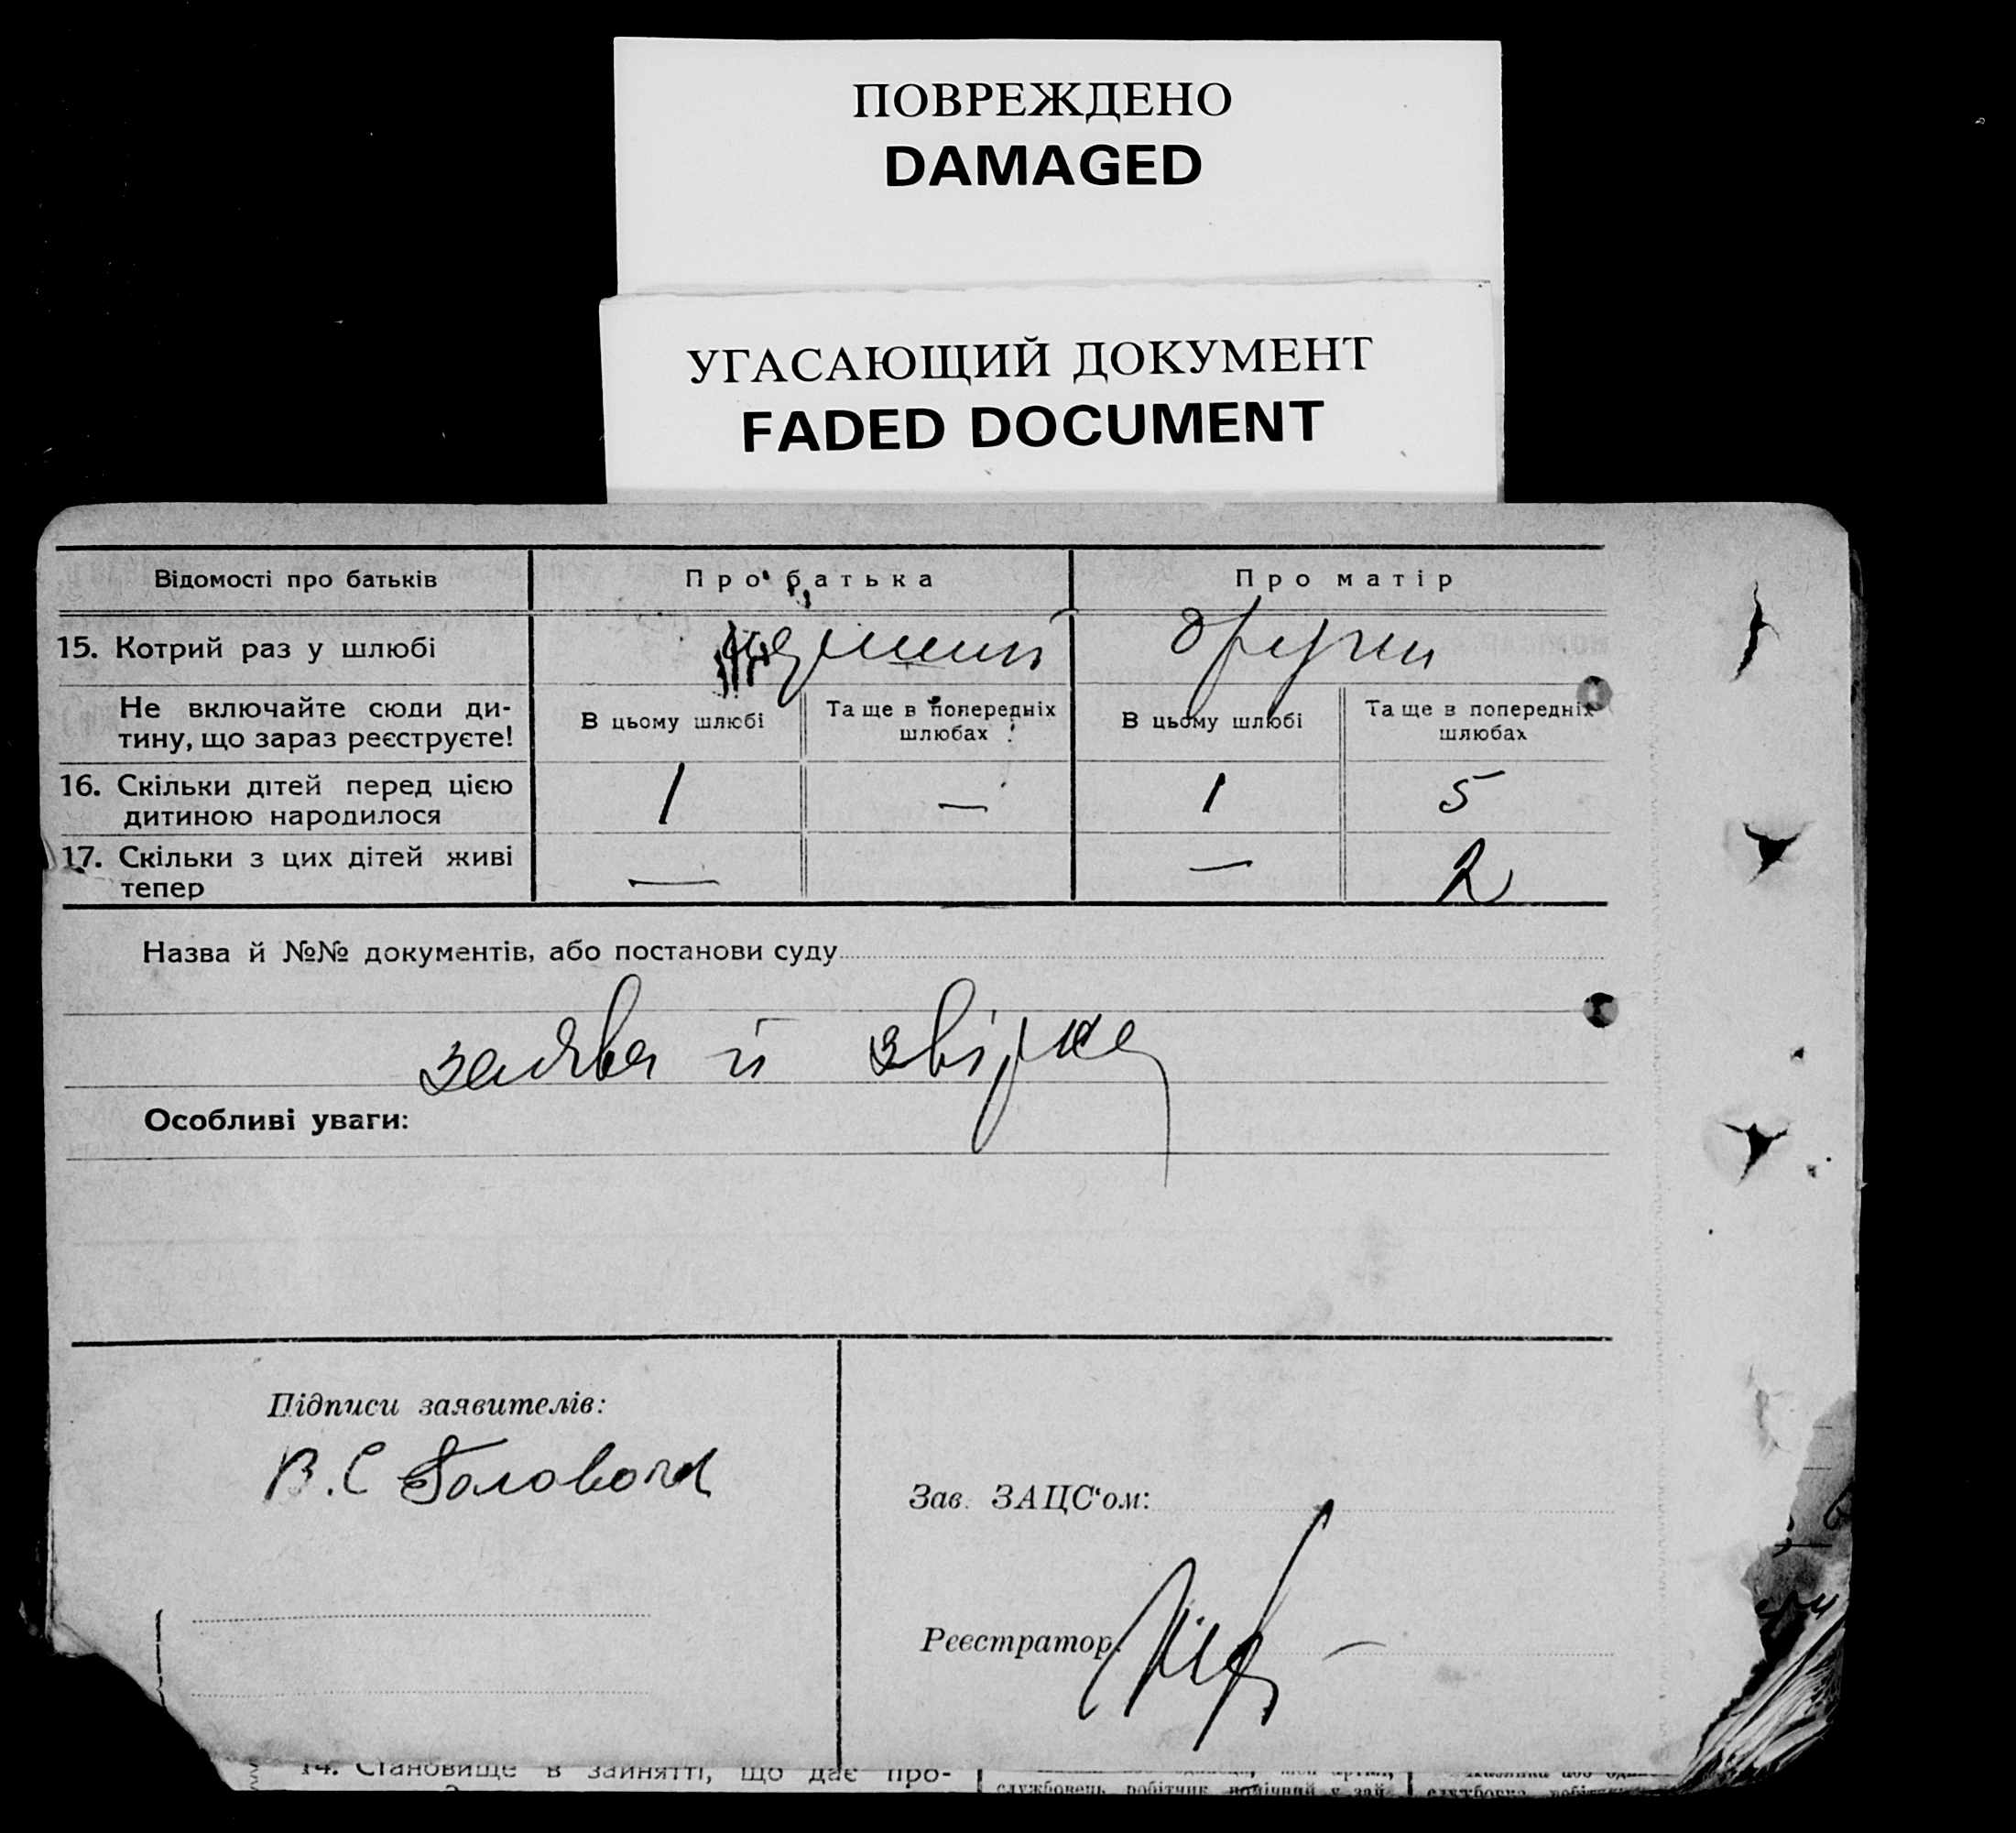 ПОВРЕЖДЕНО
DAMAGED
УГАСАЮЩИЙ ДОКУМЕНТ
FADED DOCUMENT
Відомості про батьків Про батька Про матір
15. Котрий раз у шлюбі перший други
Не включайте сюди ди-
тину, що зараз реєструєте!
В цьому шлюбі
Та ще в попередніх
шлюбах
В цьому шлюбі
Та ще в попередніх
шлюбах
16. Скільки дітей перед цією
дитиною народилося
1 — 1 5
17. Скільки з цих дітей живі
тепер
— — 2
Назва й №№ документів, або постанови суду
заява й звірка
Особливі уваги:
Підписи заявителів:
В. С
Зав. ЗАЦС'ом:
Реєстратор
14. Становище в зайнятті, що дає про-
службовець робітник